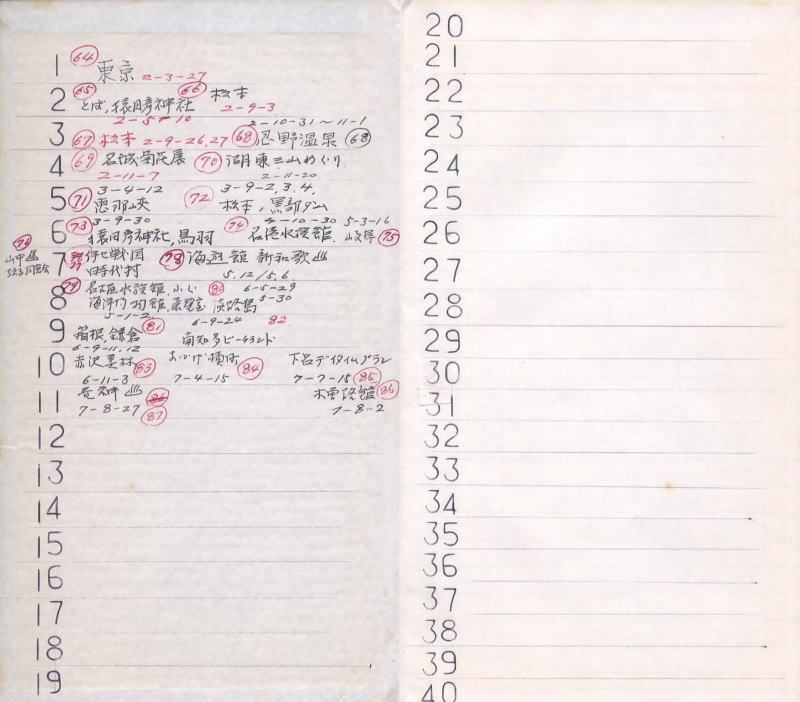 1 64 東京 2-3-27
2 65 とば,猿田彦神社 66 松本
2-5-10 2-9-3
3 67 松本 2-9-26,27 68 忍野温泉 68
2-10-31~11-1
4 69 名城菊花展 70 湖東三山めぐり
2-11-7 2-11-20
5 71 3-4-12 72 3-9-2,3,4,
恵那峡 松本,黒部ダム
6 73 3-9-30 74 -10-30 5-3-16
猿田彦神社,鳥羽 名港水族館. 岐阜 75
山中♨
7 戦国 78 海遊館 新和歌♨
時代村 5.12/5.6
8 79 名港水族館 80 6-5-29
淡路島 5-30
5-1-2
9 81 6-9-24 82
箱根,鎌倉 南知多ビーチランド
6-9-11,12
10 赤沢美林 83 おかげ横丁 84 下呂デイタイムプラン
6-11-3 7-4-15 7-7-15 85
11 ♨ 木曽路館 86
7-8-27 87 7-8-2
12
13
14
15
16
17
18
19
20
21
22
23
24
25
26
27
28
29
30
31
32
33
34
35
36
37
38
39
40